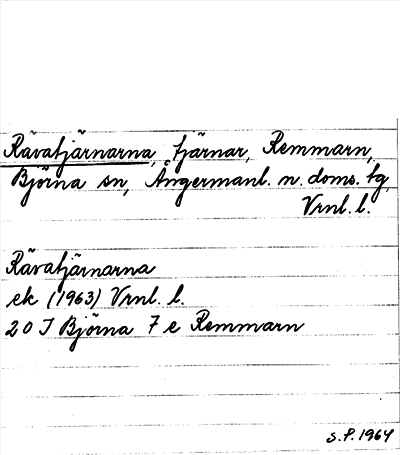 Rävatjärnarna, tjärnar, Remmarn,
Björna sn, Ångermanl. n. doms. tg,
Vrnl. l.
Rävatjärnarna
ek (1963) Vrnl. l.
20 I Björna 7 e Remmarn
S.P. 1964